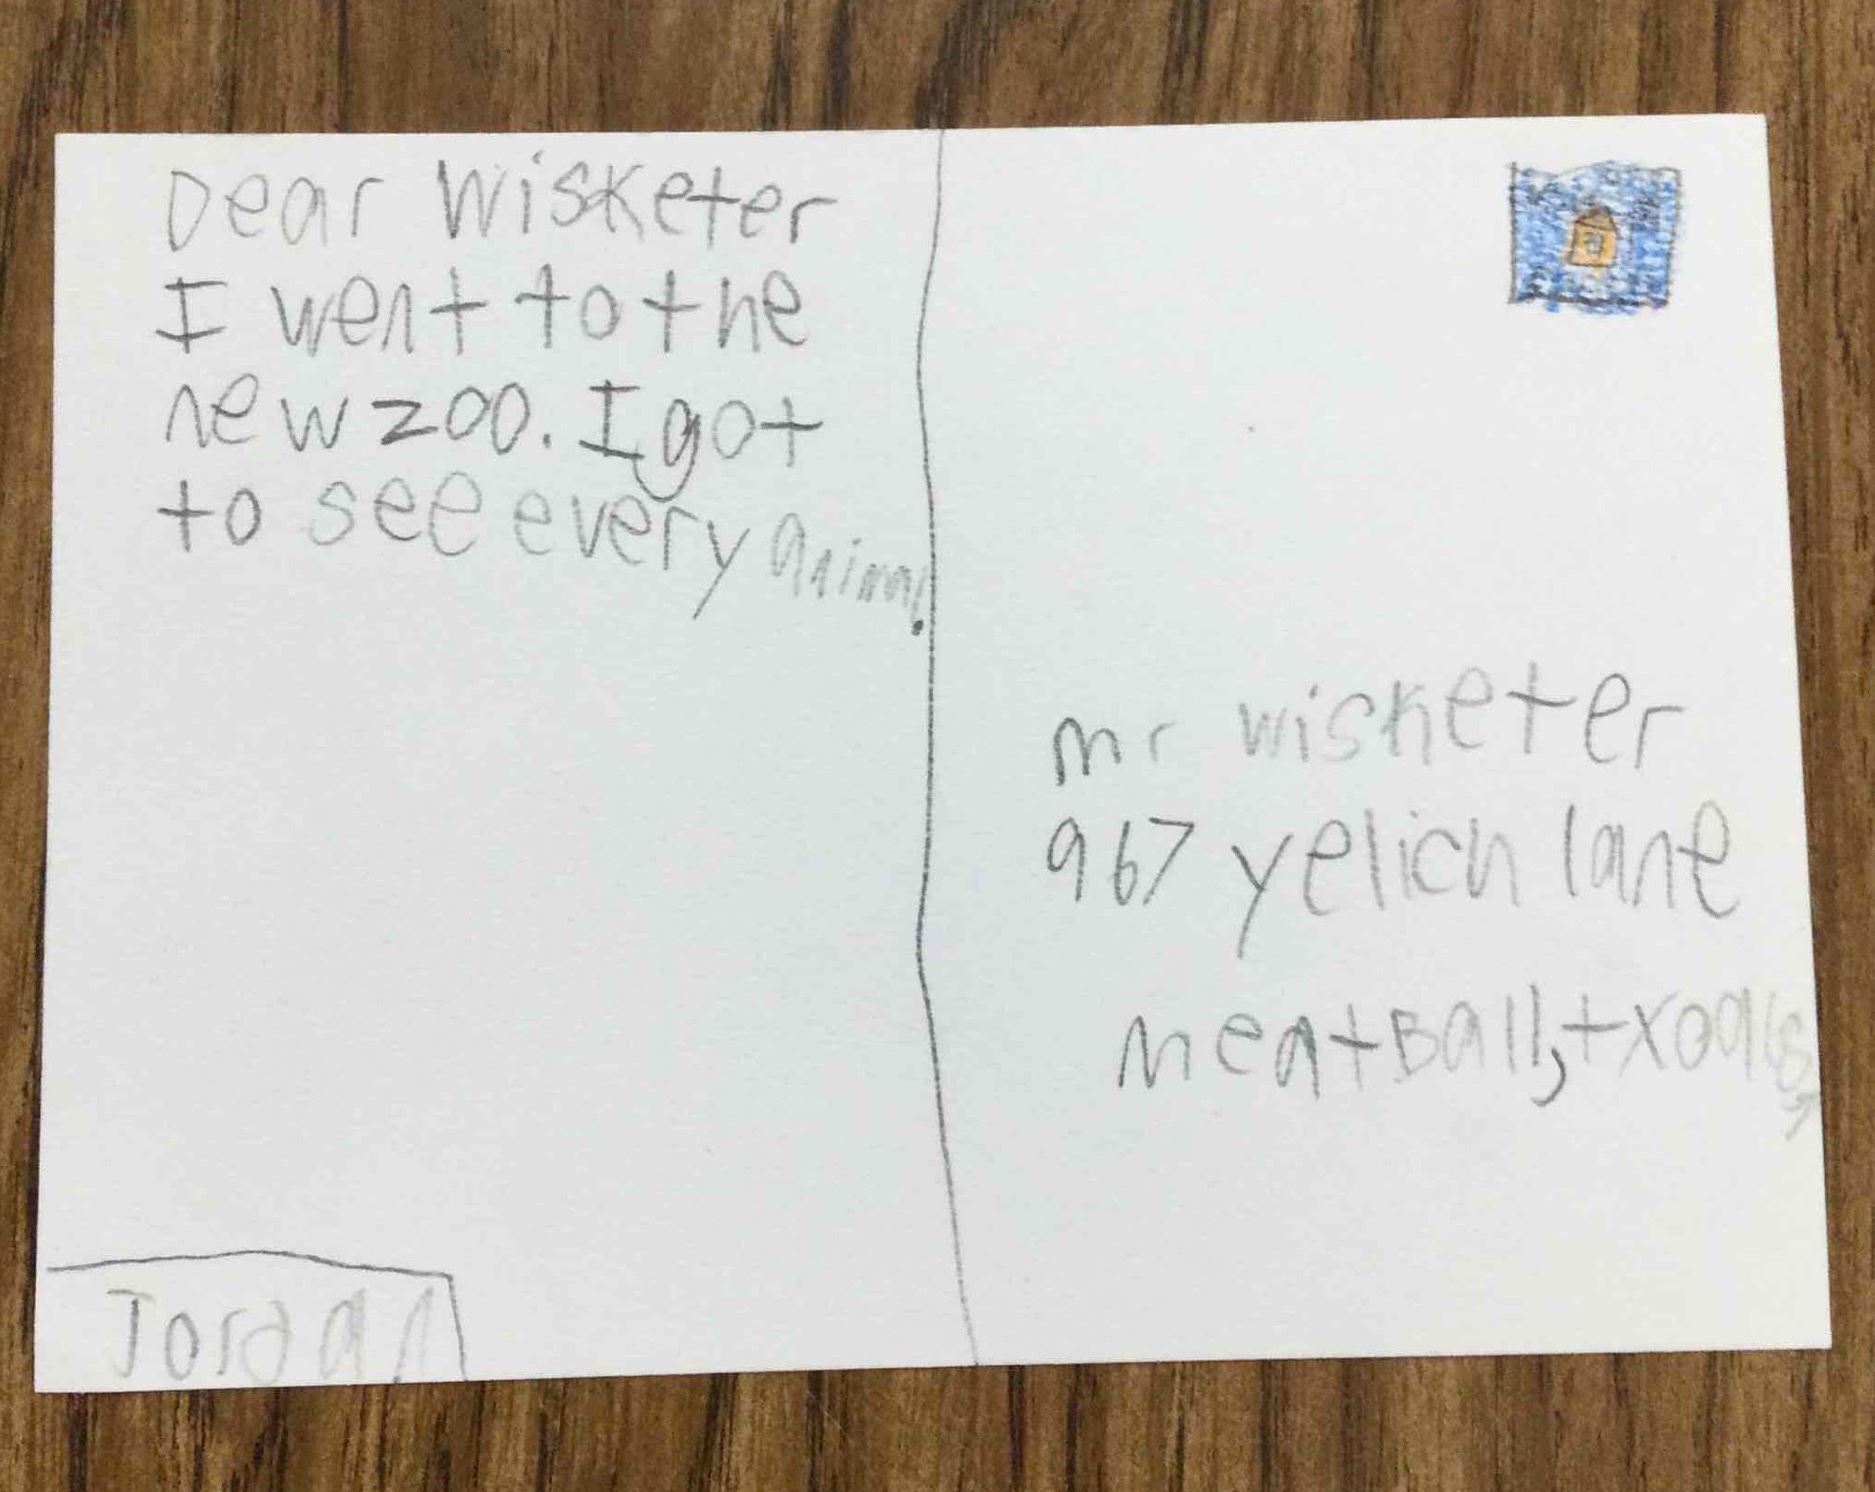 Dear Wisketer
I went to the
new zoo. I got
to see every animal.
mr wisketer
967 yelich lane
meatBall,
Jordan